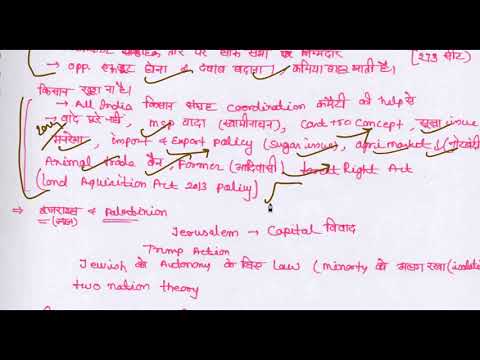 तौर पर लोक सभा पर जिम्मदार
[273 सीट)
→ opp. एकजुट होना & दबाव बढ़ाना, कमिया बाहर आती है।
किसान खुश ना है।
→ All India किसान संघर्ष coordination कमेटी की help से
msp वादा (स्वामीनाथन), Cost +50 Concept, सूखा issue
मनरेगा, import & Export policy (Sugar issue), agri market ↓ (नोटबंदी
Animal trade बैन, Farmer (आदिवासी) Right Act
(Land Aquisition Act 2013 policy)
⇒ इजराइल & Palestinian
Jerusalem → Capital विवाद
Trump Action
Jewish के Autonomy के लिए Law (minorty को अलग रखा
two nation theory